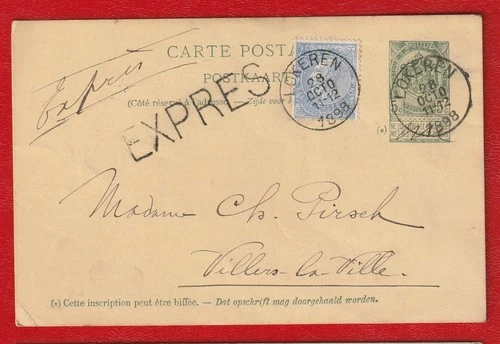 CARTE POSTA
POSTKAAR
(Côté réservé à l'adresse. — Zijde voor
Exprès
EXPRES
LOKEREN
28
OCTO
11-12
1898
LOKEREN
28
OCTO
11-12
1898
5 c 5
(*)
Madame Ch. Pirsch
Villers-la-Ville.
(*) Cette inscription peut être biffée. — Dat opschrift mag doorgehaald worden.